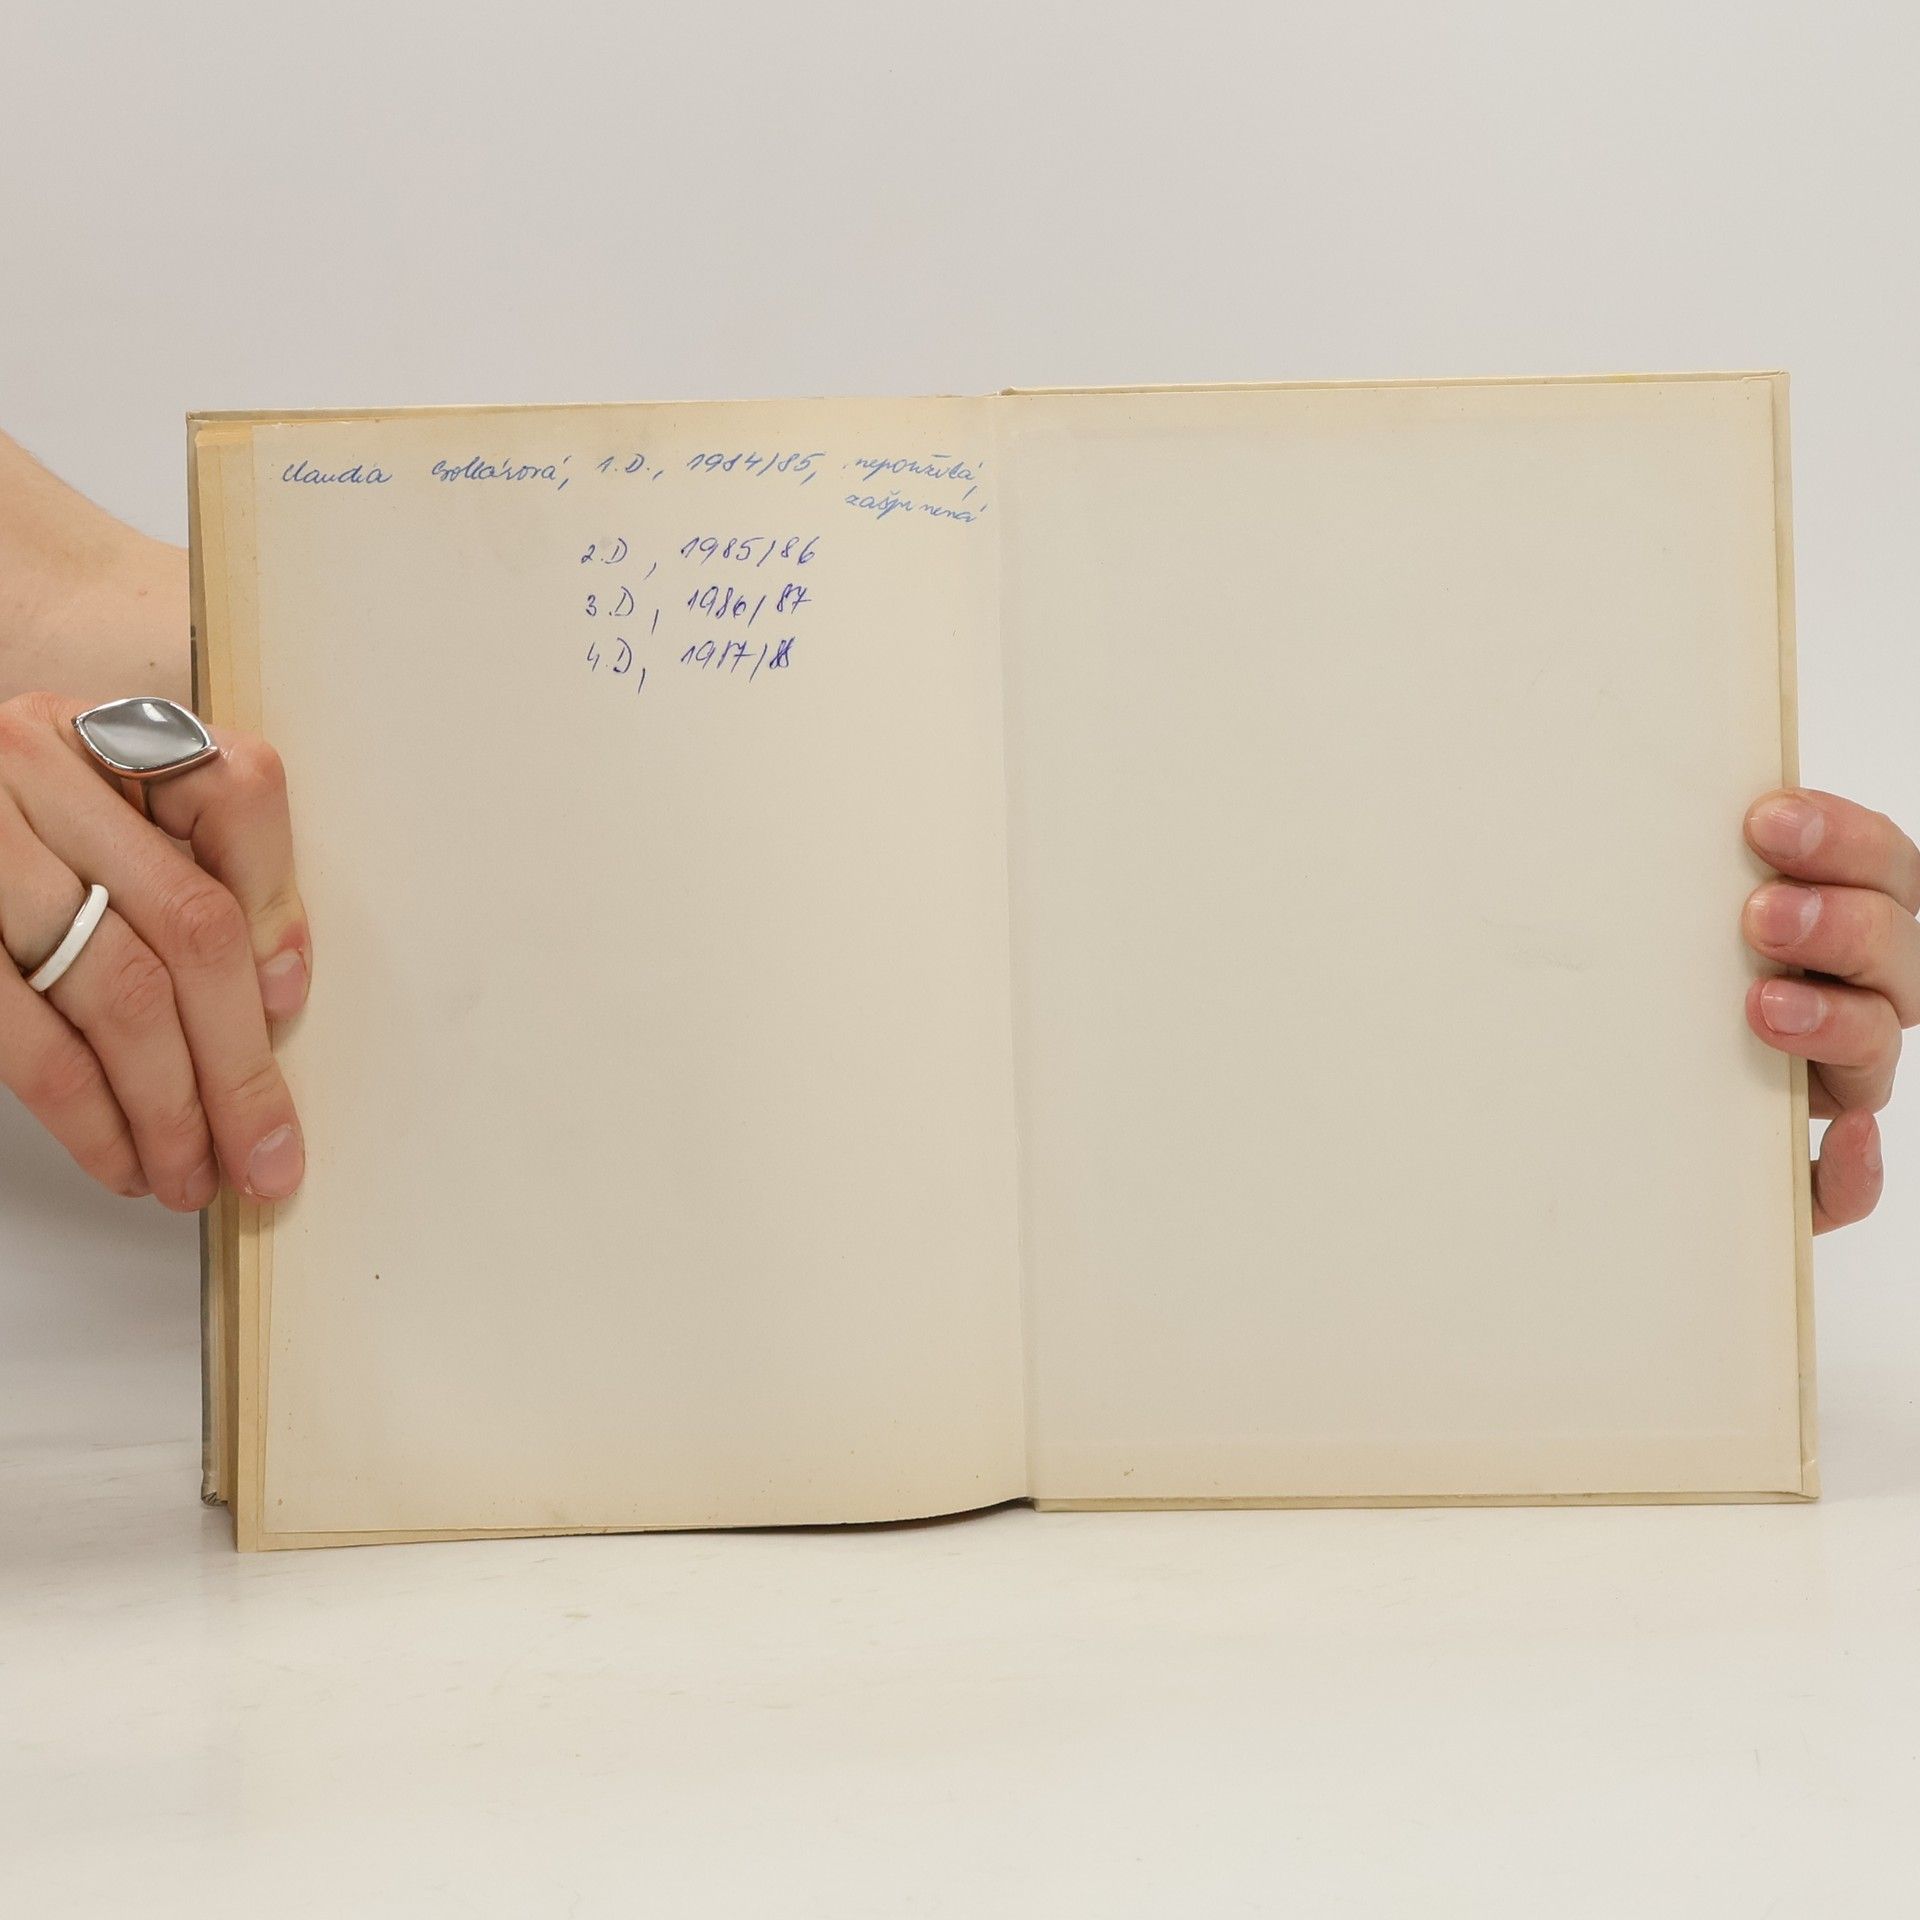 Claudia 1.D., 1984/85, nepoužitá,
zašpinená
2.D, 1985/86
3.D, 1986/87
4.D, 1987/88